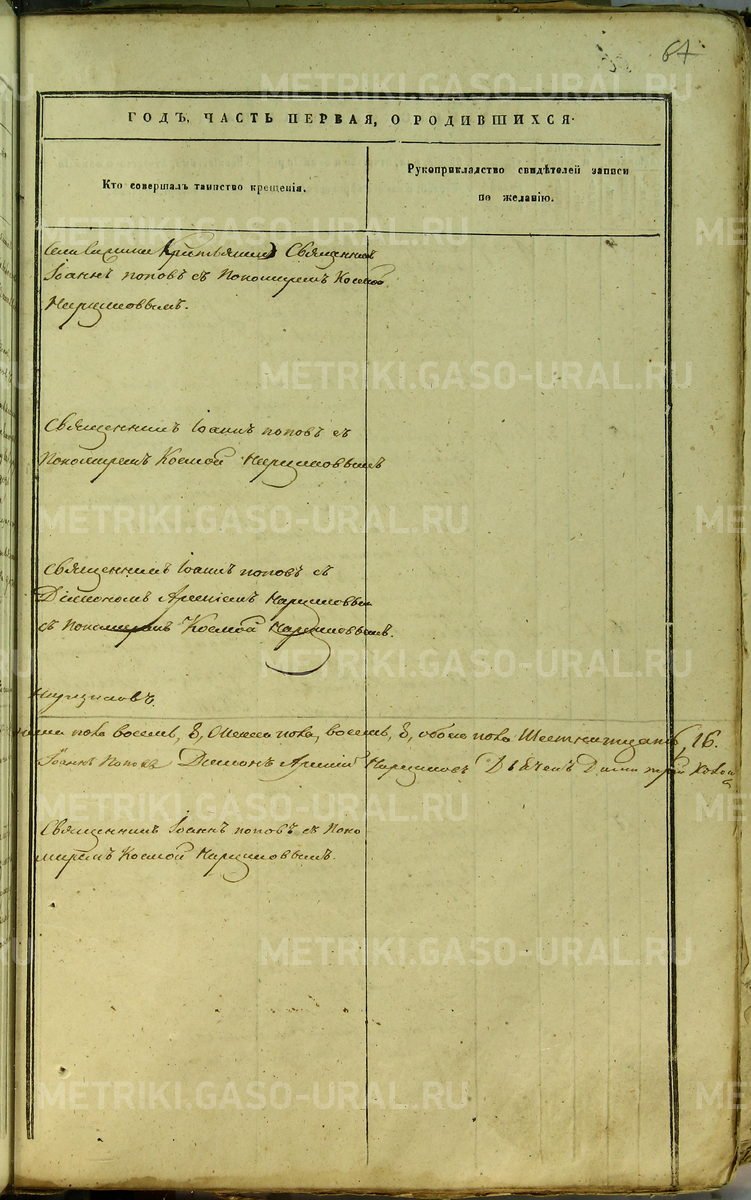 67
ГОДЪ, ЧАСТЬ ПЕРВАЯ, О РОДИВШИХСЯ.
Кто совершалъ таинство крещенія.
Рукоприкладство свидѣтелей записи
по желанію.
Священникъ
Іоаннъ Поповъ съ Пономаремъ Космой
Нарциссовымъ.
Священникъ Іоаннъ Поповъ съ
Пономаремъ Космой Нарциссовымъ
Священникъ Іоаннъ Поповъ съ
Діакономъ Арсеніемъ Нарциссовым
съ Пономаремъ Космой Нарциссовымъ.
Нарциссовъ.
пола восемь, 8, Женска пола, восемь, 8, обоего пола Шестнатцать, 16.
Іоаннъ Поповъ Діаконъ Арсеній Нарциссовъ Дьячекъ Димитрій
Священникъ Іоаннъ Поповъ съ Поно
маремъ Космой Нарциссовымъ.
METRIKI.GASO-URAL.RU